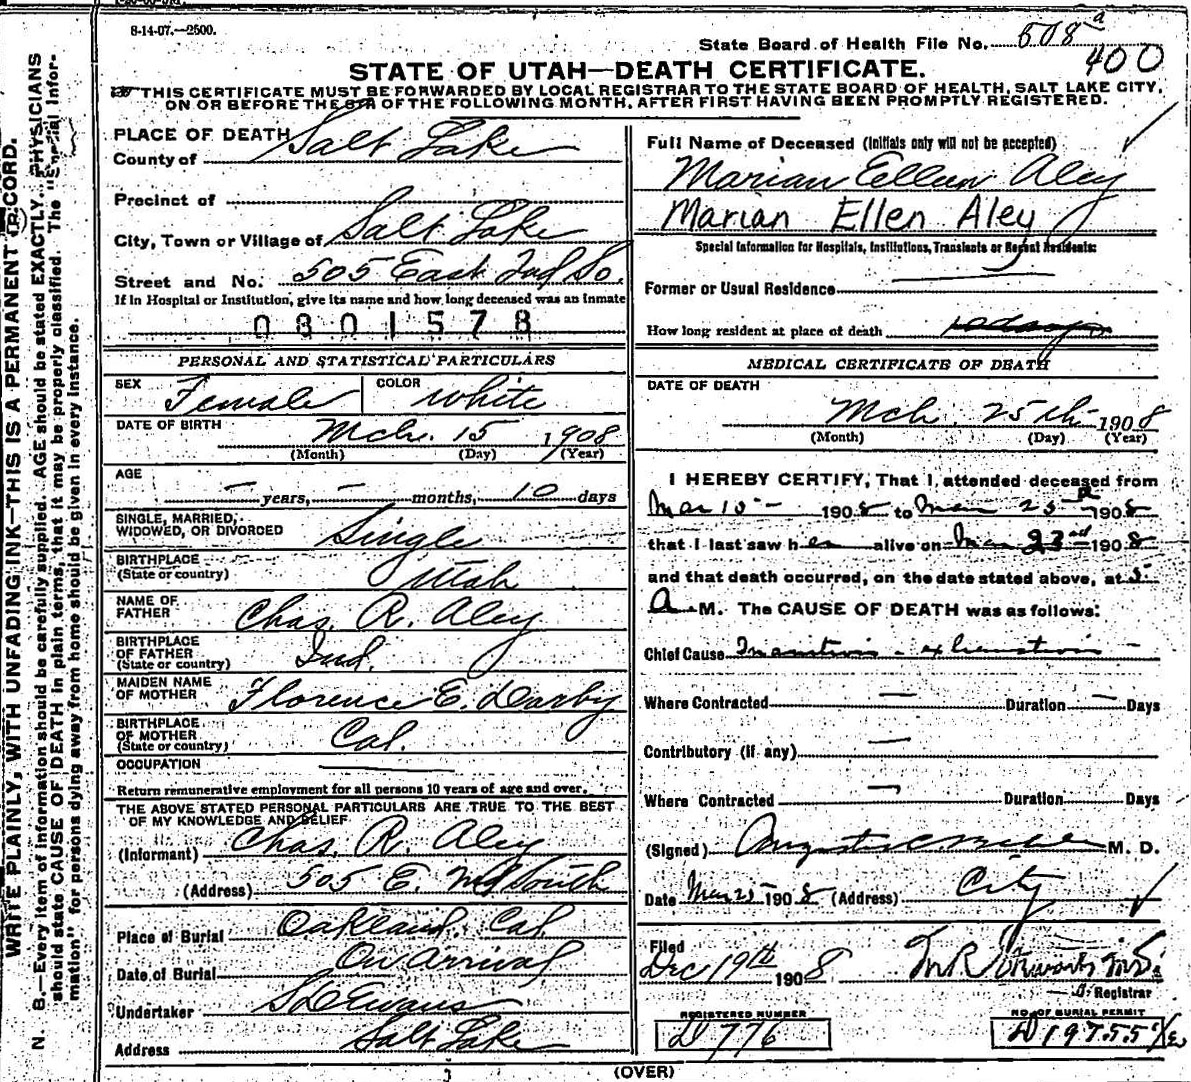 8-14-07.—2500.
State Board of Health File No. 508 a
400
STATE OF UTAH—DEATH CERTIFICATE.
THIS CERTIFICATE MUST BE FORWARDED BY LOCAL REGISTRAR TO THE STATE BOARD OF HEALTH, SALT LAKE CITY,
ON OR BEFORE THE 5TH OF THE FOLLOWING MONTH, AFTER FIRST HAVING BEEN PROMPTLY REGISTERED.
WRITE PLAINLY, WITH UNFADING INK—THIS IS A PERMANENT RECORD.
N. B.—Every item of information should be carefully supplied. AGE should be stated EXACTLY. PHYSICIANS
should state CAUSE OF DEATH in plain terms, that it may be properly classified. The "Special Infor-
mation" for persons dying away from home should be given in every instance.
PLACE OF DEATH
County of Salt Lake
Precinct of
City, Town or Village of Salt Lake
Street and No. 505 East 2nd So.
If in Hospital or Institution, give its name and how long deceased was an inmate
0801578
PERSONAL AND STATISTICAL PARTICULARS
SEX Female COLOR White
DATE OF BIRTH Mch. 15 1908
(Month) (Day) (Year)
AGE — years, — months, 10 days
SINGLE, MARRIED,
WIDOWED, OR DIVORCED Single
BIRTHPLACE
(State or country) Utah
NAME OF
FATHER Chas. R. Aley
BIRTHPLACE
OF FATHER
(State or country) Ind.
MAIDEN NAME
OF MOTHER Florence E. Darby
BIRTHPLACE
OF MOTHER
(State or country) Cal.
OCCUPATION
Return remunerative employment for all persons 10 years of age and over.
THE ABOVE STATED PERSONAL PARTICULARS ARE TRUE TO THE BEST
OF MY KNOWLEDGE AND BELIEF
(Informant) Chas. R. Aley
(Address) 505 E. 2nd South
Place of Burial Oakland Cal.
Date of Burial On Arrival
Undertaker S D Evans
Address Salt Lake
Full Name of Deceased (Initials only will not be accepted)
Marian Ellen Aley
Marian Ellen Aley
Special Information for Hospitals, Institutions, Transients or Recent Residents:
Former or Usual Residence
How long resident at place of death 10 days
MEDICAL CERTIFICATE OF DEATH
DATE OF DEATH
Mch. 25th 1908
(Month) (Day) (Year)
I HEREBY CERTIFY, That I attended deceased from
Mar 15 - 1908 to Mar 25 1908
that I last saw her alive on Mar 23rd 1908
and that death occurred, on the date stated above, at 5
A M. The CAUSE OF DEATH was as follows:
Chief Cause Inanition - exhaustion -
Where Contracted — Duration — Days
Contributory (if any) —
Where Contracted — Duration Days
(Signed) M. D.
Date Mar 25 1908 (Address) City
Filed
Dec 19th 1908
Registrar
REGISTERED NUMBER
D 776
NO. OF BURIAL PERMIT
D 19755
(OVER)